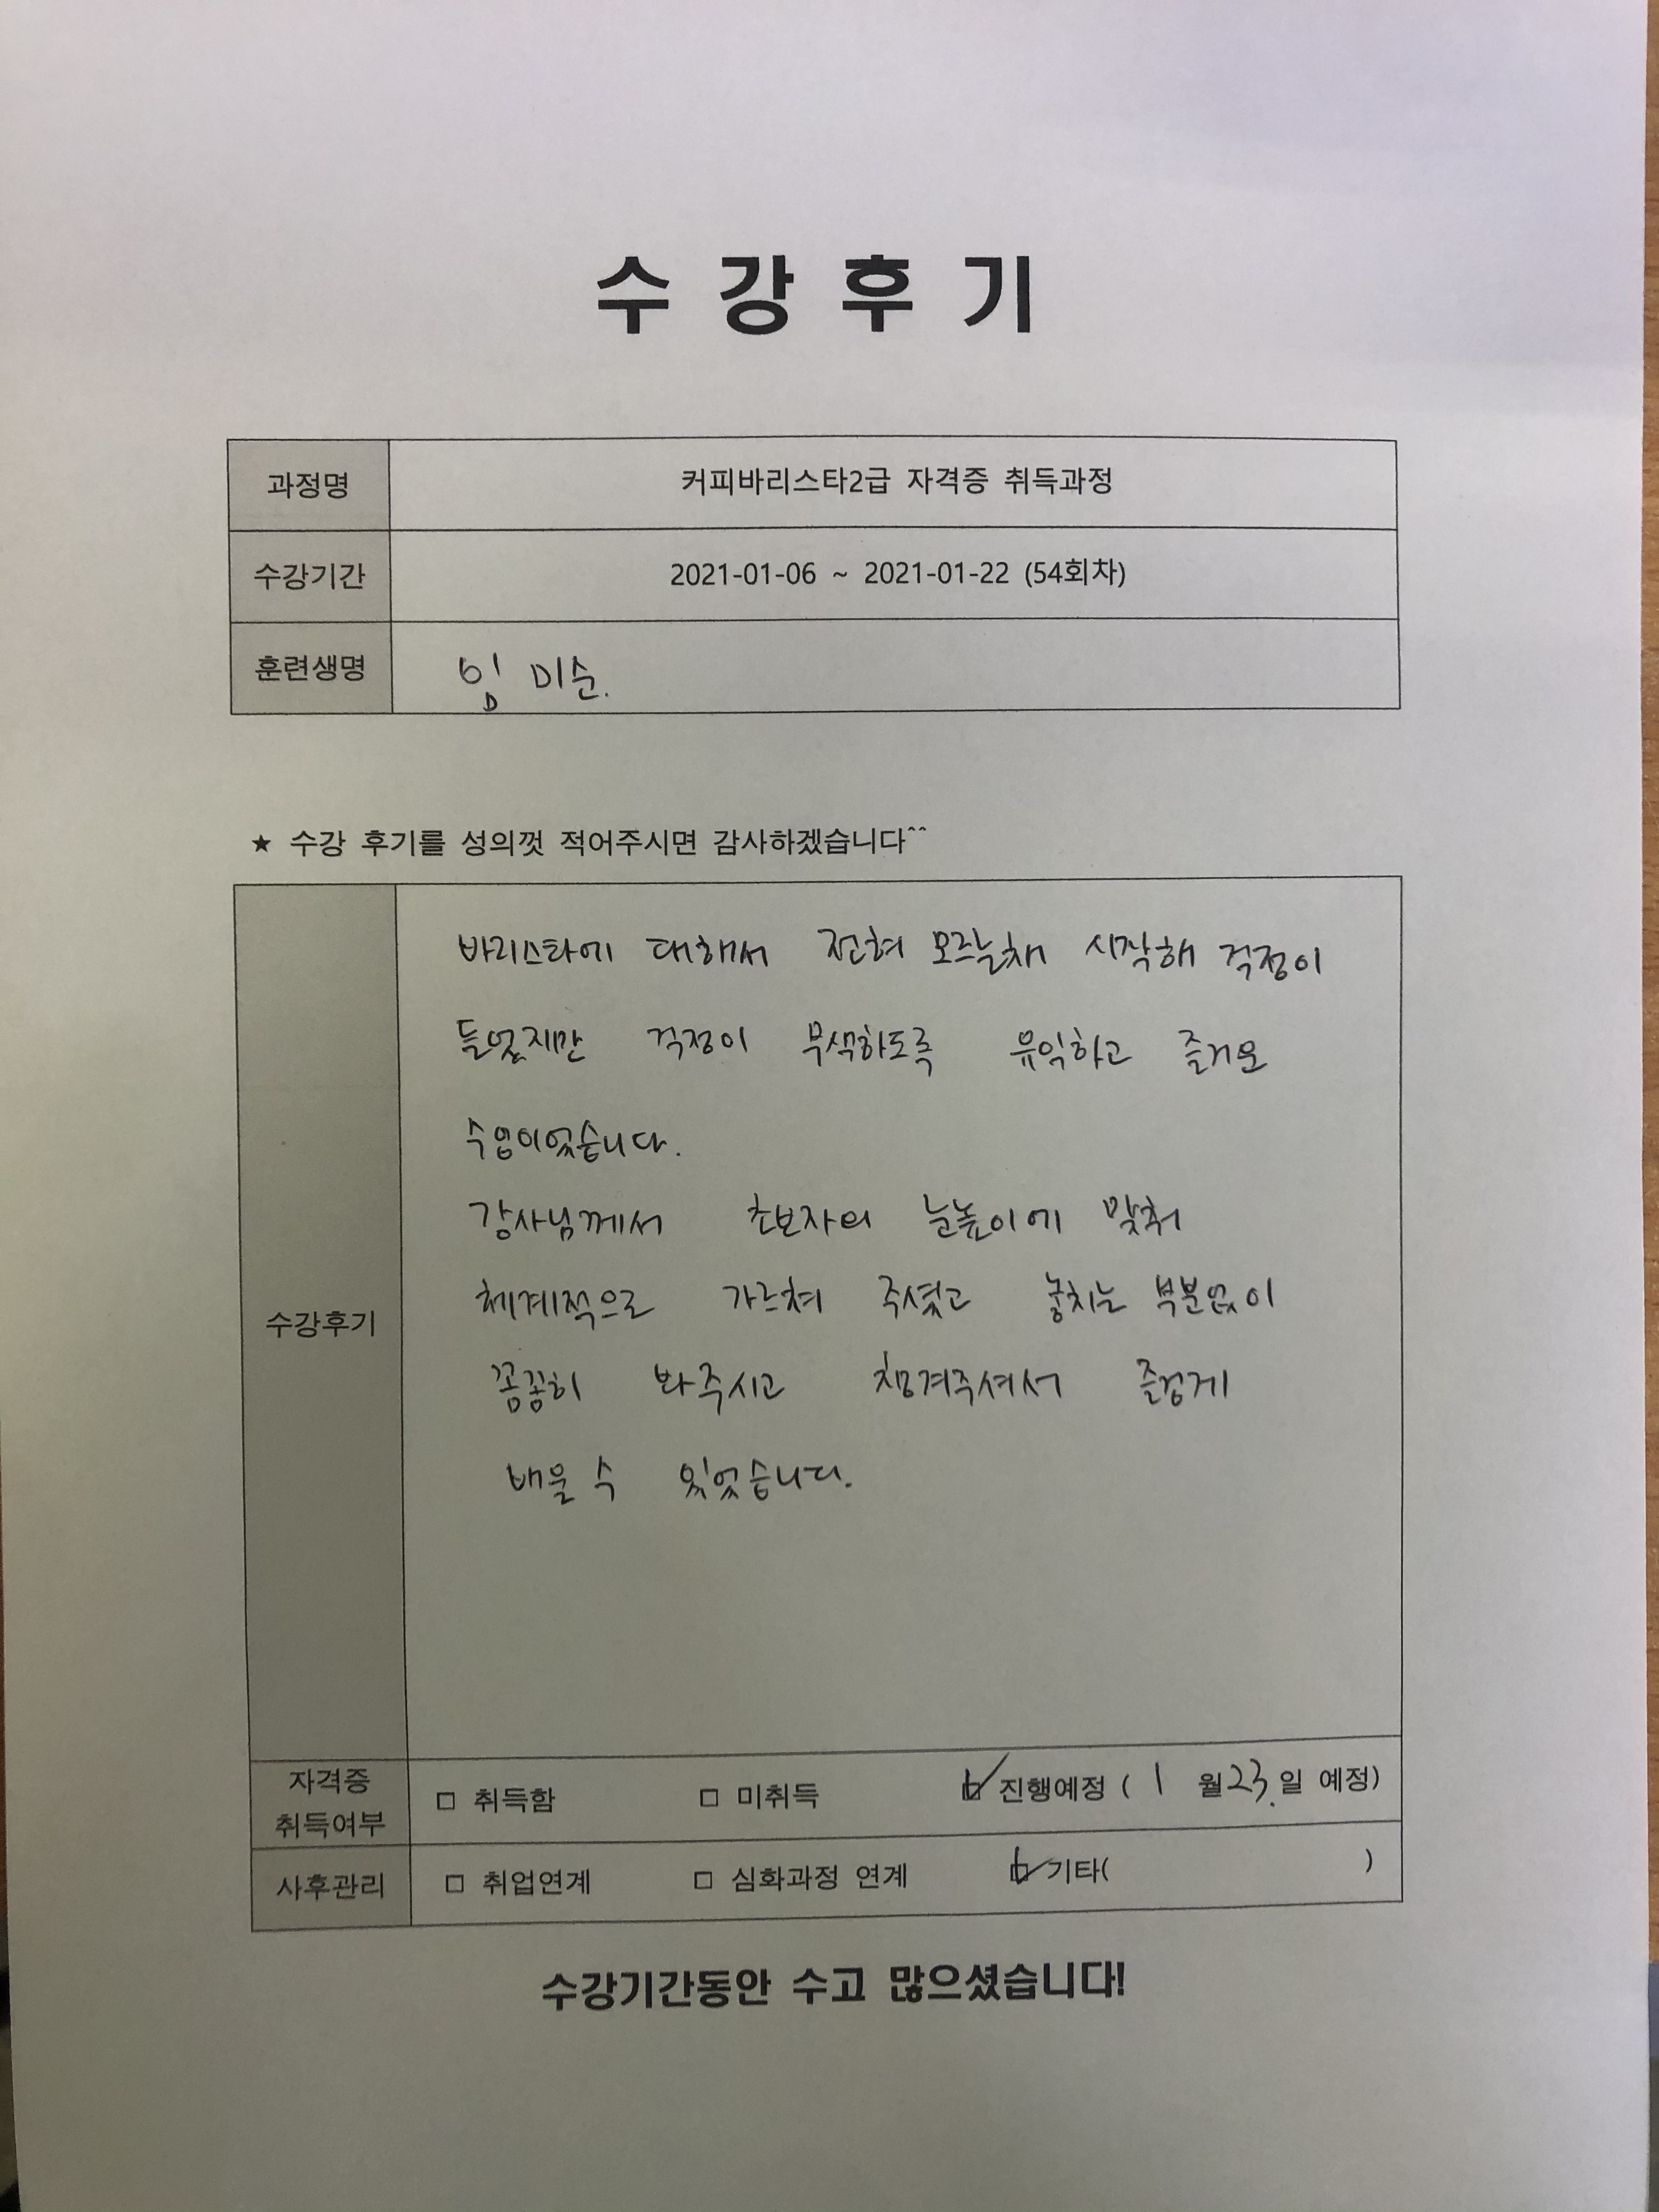 수강후기
과정명 커피바리스타2급 자격증 취득과정
수강기간 2021-01-06 ~ 2021-01-22 (54회차)
훈련생명 임미순.
★ 수강 후기를 성의껏 적어주시면 감사하겠습니다^^
수강후기
바리스타에 대해서 전혀 모르는채 시작해 걱정이
들었지만 걱정이 무색하도록 유익하고 즐거운
수업이었습니다.
강사님께서 초보자의 눈높이에 맞춰
체계적으로 가르쳐 주셨고 놓치는 부분없이
꼼꼼히 봐주시고 챙겨주셔서 즐겁게
배울 수 있었습니다.
자격증 취득여부 □ 취득함 □ 미취득 ☑ 진행예정 ( 1 월 23.일 예정)
사후관리 □ 취업연계 □ 심화과정 연계 ☑ 기타( )
수강기간동안 수고 많으셨습니다!